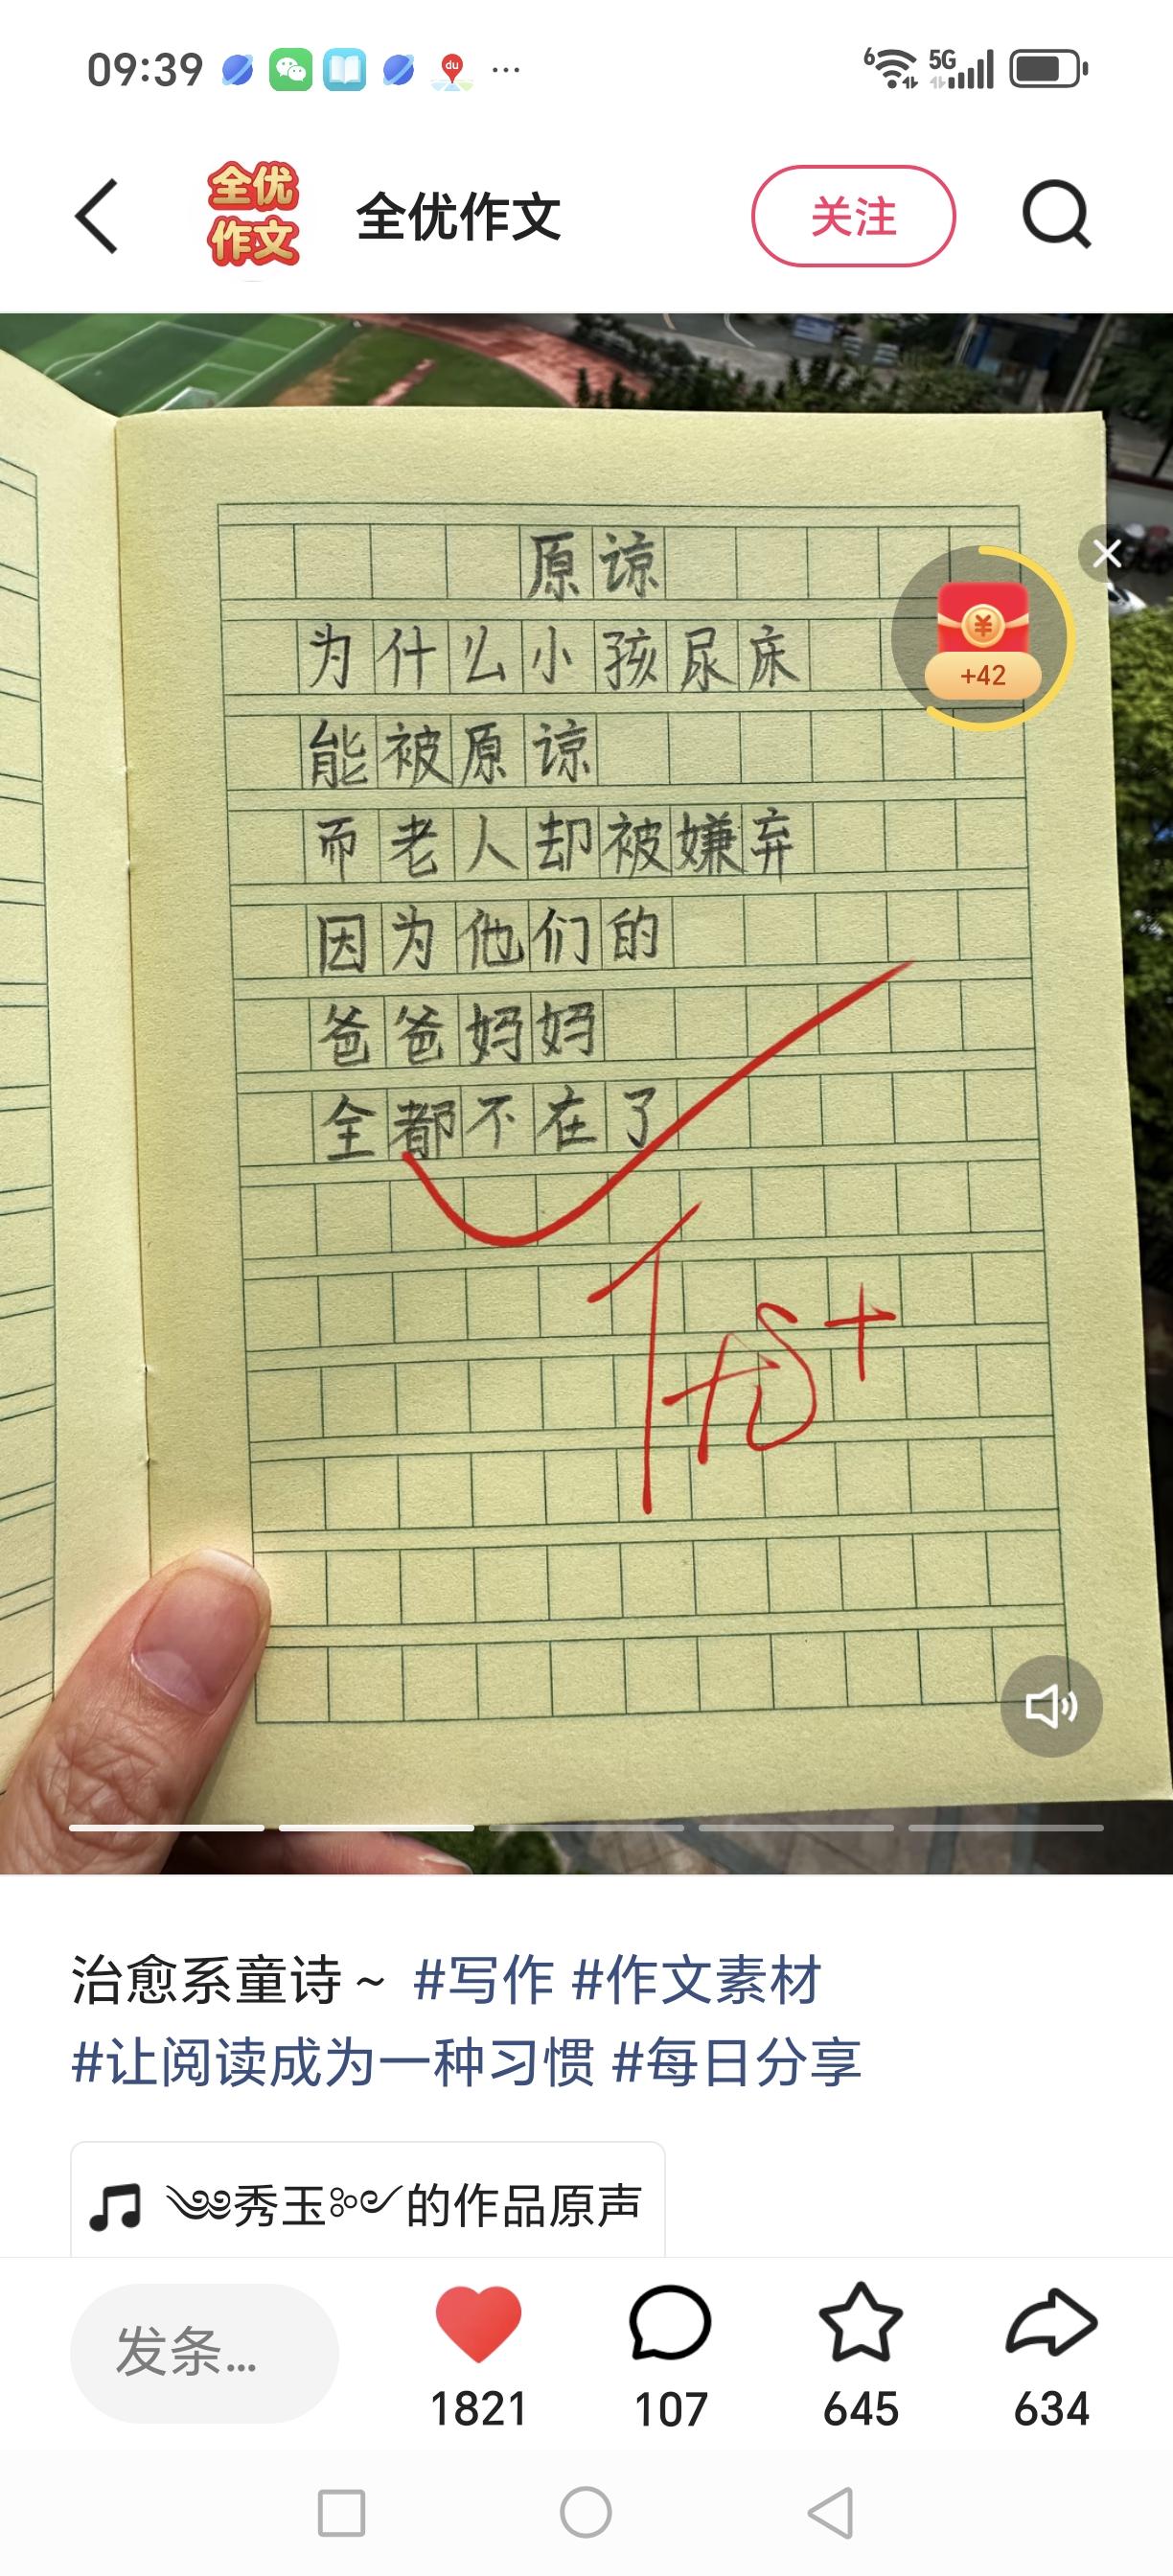 09:39
du
6
5G
全优
作文
全优作文
关注
原谅
为什么小孩尿床
能被原谅
而老人却被嫌弃
因为他们的
爸爸妈妈
全都不在了
+42
优+
治愈系童诗~ #写作 #作文素材
#让阅读成为一种习惯 #每日分享
秀玉的作品原声
发条...
1821
107
645
634